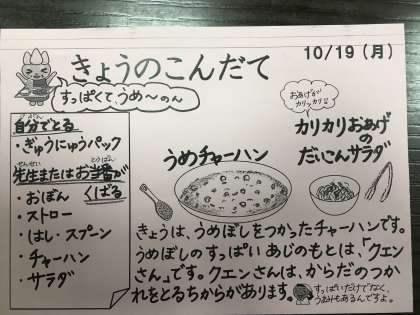 10/19(月)
きょうのこんだて
すっぱくて、うめ〜のん
おあげが
カリッカリ!!
カリカリおあげの
だいこんサラダ
うめチャーハン
自分でとる
・ぎゅうにゅうパック
せんせい とうばん
先生またはお当番が
くばる
・おぼん
・ストロー
・はし・スプーン
・チャーハン
・サラダ
きょうは、うめぼしをつかったチャーハンです。
うめぼしのすっぱいあじのもとは、「クエン
さん」です。クエンさんは、からだのつか
れをとるちからがあります。
すっぱいだけでなく、
うれしいもあるんですよ。